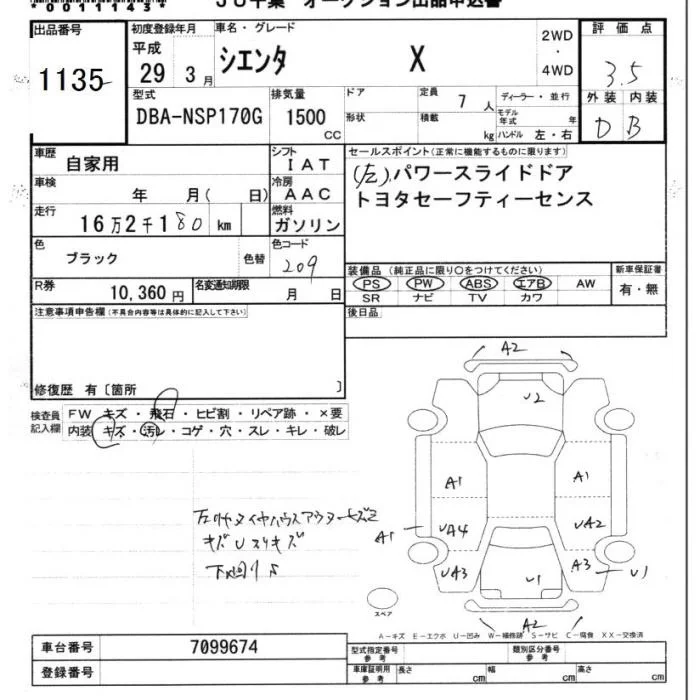 *0011143* JU千葉 オークション出品申込書
出品番号 初度登録年月 車名・グレード 2WD ・ 4WD 評価点
1135 平成 29 3月 シエンタ X 3.5
型式 排気量 ドア 定員 7人 ディーラー・並行 外装 内装
DBA-NSP170G 1500 CC 形状 積載 kg モデル年式 年 ハンドル 左・右 D B
車歴 自家用 シフト IAT セールスポイント(正常に機能するものに限ります)
車検 年 月( 日) 冷房 AAC (左).パワースライドドア
走行 16万2千180 km 燃料 ガソリン トヨタセーフティーセンス
色 ブラック 色替 色コード 209
装備品 (純正品に限り○をつけてください) 新車保証書
PS PW ABS エアB AW 有・無
SR ナビ TV カワ
R券 10,360円 名変通知期限 月 日
注意事項申告欄(不具合内容等は具体的に記入して下さい) 後日品
修復歴 有〔箇所 〕
検査員記入欄 FW キズ・飛石・ヒビ割・リペア跡・×要
内装 キズ・汚レ・コゲ・穴・スレ・キレ・破レ
A2
U2
A1 A1
A1 UA4 UA2
UA3 U1 A3 U1
A2
キズUスリキズ
スペア
A-キズ E-エクボ U-凹み W-補修跡 S-サビ C-腐食 XX-交換済
車台番号 7099674 型式指定番号 参考 類別区分番号 参考
登録番号 車庫証明用 参考 長さ cm 幅 cm 高さ cm